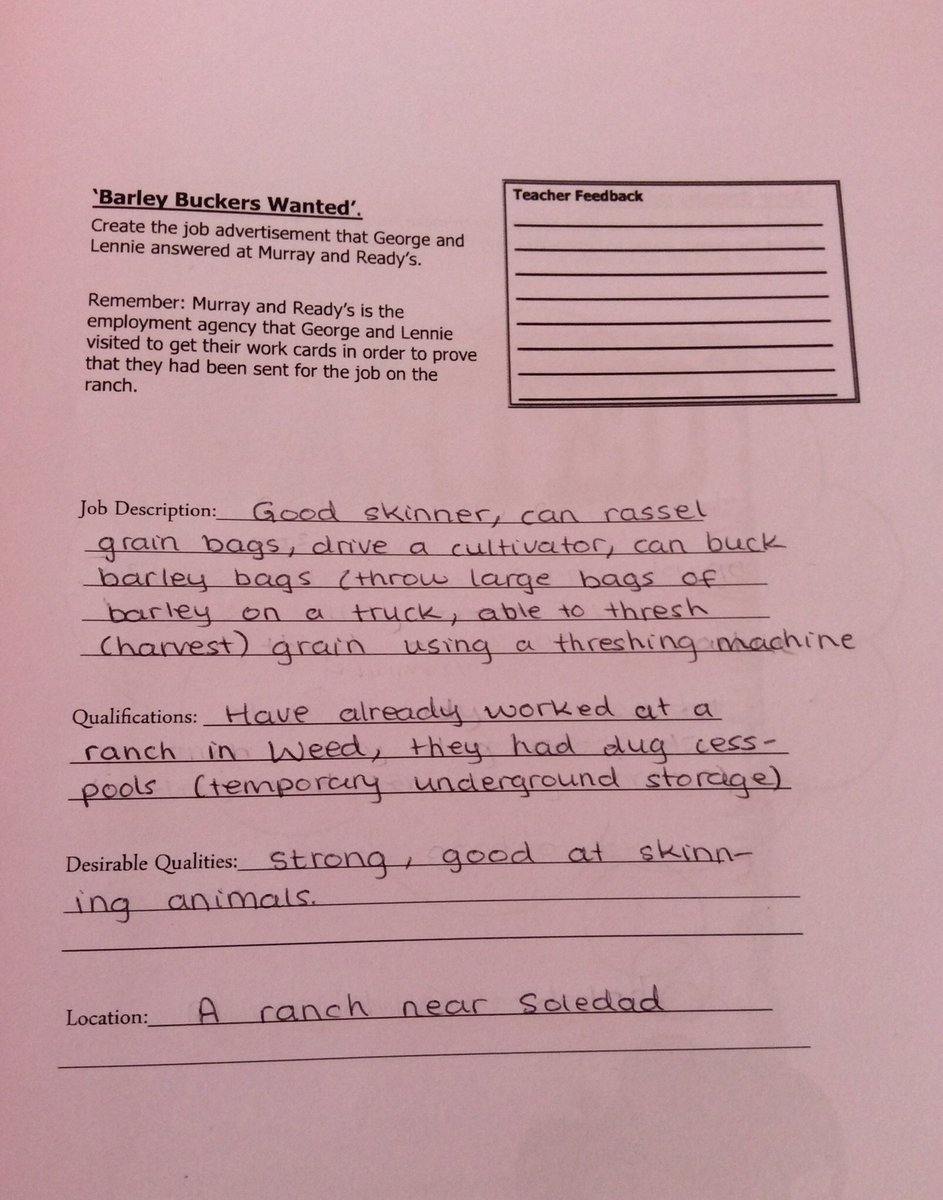 'Barley Buckers Wanted'.
Create the job advertisement that George and
Lennie answered at Murray and Ready's.
Remember: Murray and Ready's is the
employment agency that George and Lennie
visited to get their work cards in order to prove
that they had been sent for the job on the
ranch.
Teacher Feedback
Job Description: Good skinner, can rassel
grain bags, drive a cultivator, can buck
barley bags (throw large bags of
barley on a truck, able to thresh
(harvest) grain using a threshing machine
Qualifications: Have already worked at a
ranch in Weed, they had dug cess-
pools (temporary underground storage)
Desirable Qualities: strong, good at skinn-
ing animals.
Location: A ranch near Soledad